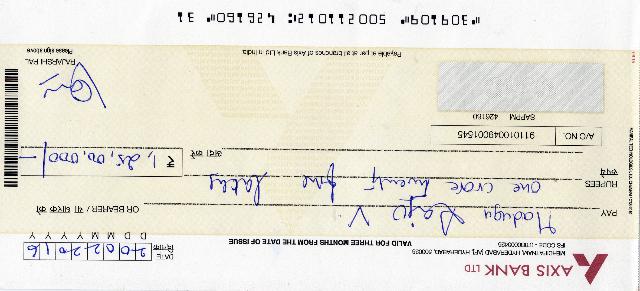 AXIS BANK LTD
MEHDIPATNAM, HYDERABAD [AP], HYDERABAD, 500028
IFS CODE - UTIB0000426
VALID FOR THREE MONTHS FROM THE DATE OF ISSUE
दिनांक DATE 20022016
D D M M Y Y Y Y
PAY Madugu Raju V OR BEARER / या धारक को
RUPEES रुपये One crore twenty five lakhs
अदा करें ₹ 1,25,00,000/-
A/C NO. 911010049001545
SAPPM 426160
RAJARSHI PAL
Payable at par at all branches of Axis Bank Ltd in India
Please sign above
"309109" 500211012: 426160" 31